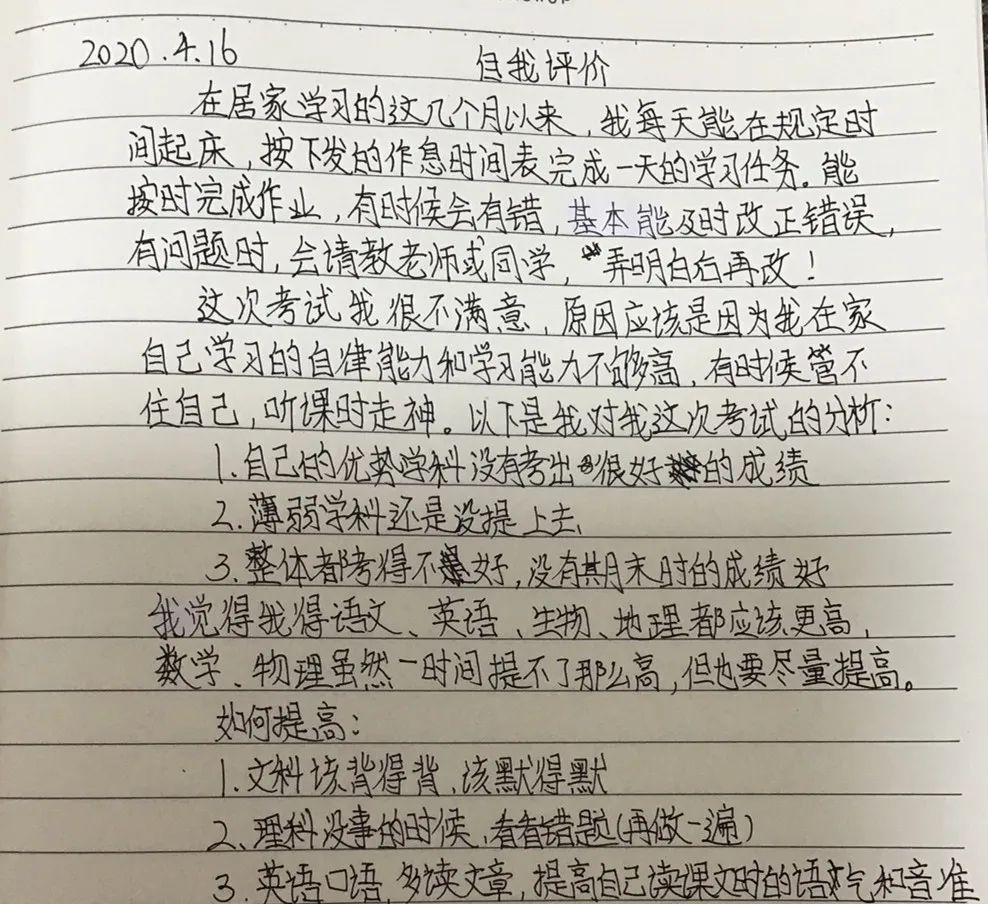 2020.4.16 自我评价
在居家学习的这几个月以来，我每天能在规定时
间起床，按下发的作息时间表完成一天的学习任务。能
按时完成作业，有时候会有错，基本能及时改正错误，
有问题时，会请教老师或同学，弄明白后再改！
这次考试我很不满意，原因应该是因为我在家
自己学习的自律能力和学习能力不够高，有时候管不
住自己，听课时走神。以下是我对我这次考试的分析：
1.自己的优势学科没有考出很好的成绩
2.薄弱学科还是没提上去
3.整体都考得不好，没有期末时的成绩好
我觉得我得语文、英语、生物、地理都应该更高，
数学、物理虽然一时间提不了那么高，但也要尽量提高。
如何提高：
1.文科该背得背、该默得默
2.理科没事的时候，看看错题(再做一遍)
3.英语口语，多读文章，提高自己读课文时的语气和音准